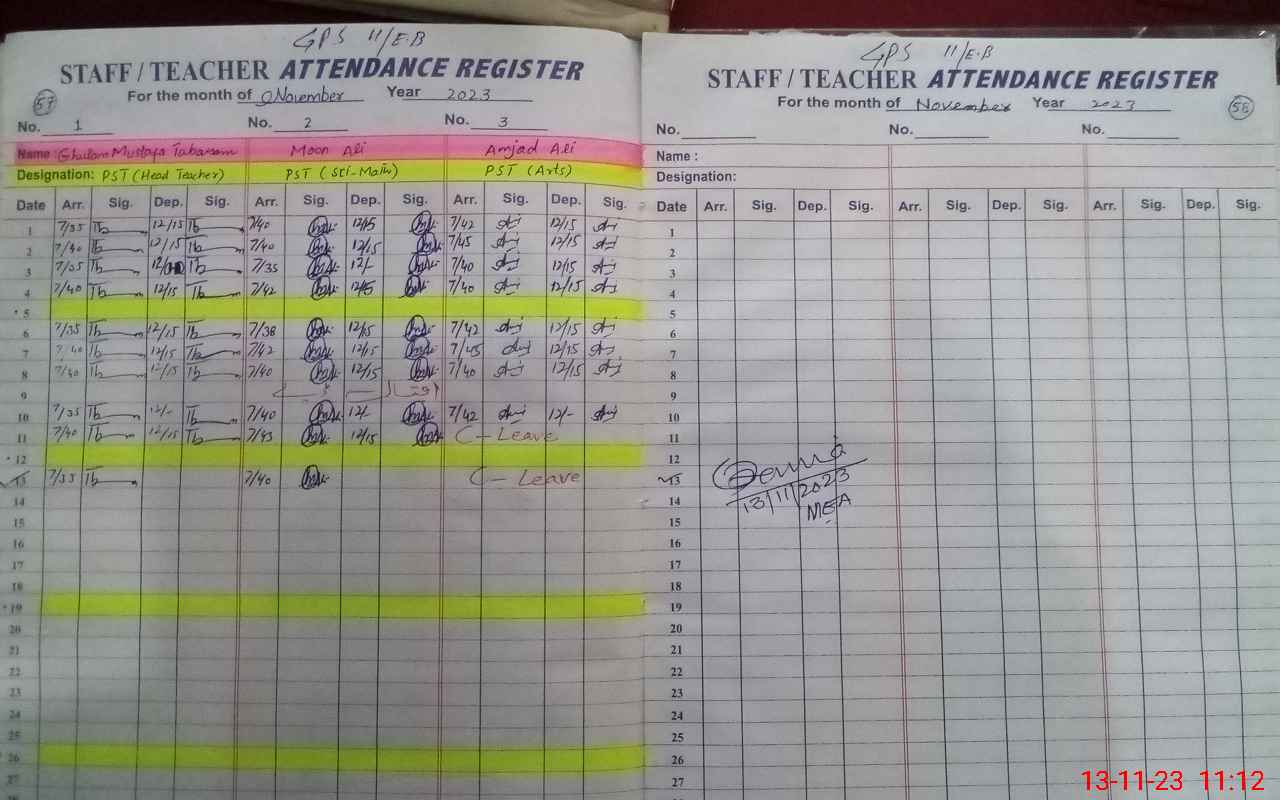 GPS 11/E-B
STAFF / TEACHER ATTENDANCE REGISTER
For the month of November Year 2023
57
No. 1 No. 2 No. 3
Name : Ghulam Mustafa Tabassam Moon Ali Amjad Ali
Designation: PST (Head Teacher) PST (Sci-Math) PST (Arts)
Date Arr. Sig. Dep. Sig. Arr. Sig. Dep. Sig. Arr. Sig. Dep. Sig.
1 7/35 Tb 12/15 Tb 7/40 12/15 7/42 12/15
2 7/40 Tb 12/15 Tb 7/40 12/15 7/45 12/15
3 7/35 Tb Tb 7/35 12/- 7/40 12/15
4 7/40 Tb 12/15 Tb 7/42 12/15 7/40 12/15
5
6 7/35 Tb 12/15 Tb 7/38 12/15 7/42 12/15
7 7/40 Tb 12/15 Tb 7/42 12/15 7/45 12/15
8 7/40 Tb 12/15 Tb 7/40 12/15 7/40 12/15
9
10 7/35 Tb 12/- Tb 7/40 12/- 7/42 12/-
11 7/40 Tb 12/15 Tb 7/43 12/15 C-Leave
12
13 7/35 Tb 7/40 C-Leave
14
15
16
17
18
19
20
21
22
23
24
25
26
27
GPS 11/E-B
STAFF / TEACHER ATTENDANCE REGISTER
For the month of November Year 2023
58
No. No. No.
Name :
Designation:
Date Arr. Sig. Dep. Sig. Arr. Sig. Dep. Sig. Arr. Sig. Dep. Sig.
1
2
3
4
5
6
7
8
9
10
11
12
13
13/11/2023
14
MEA
15
16
17
18
19
20
21
22
23
24
25
26
27
13-11-23 11:12